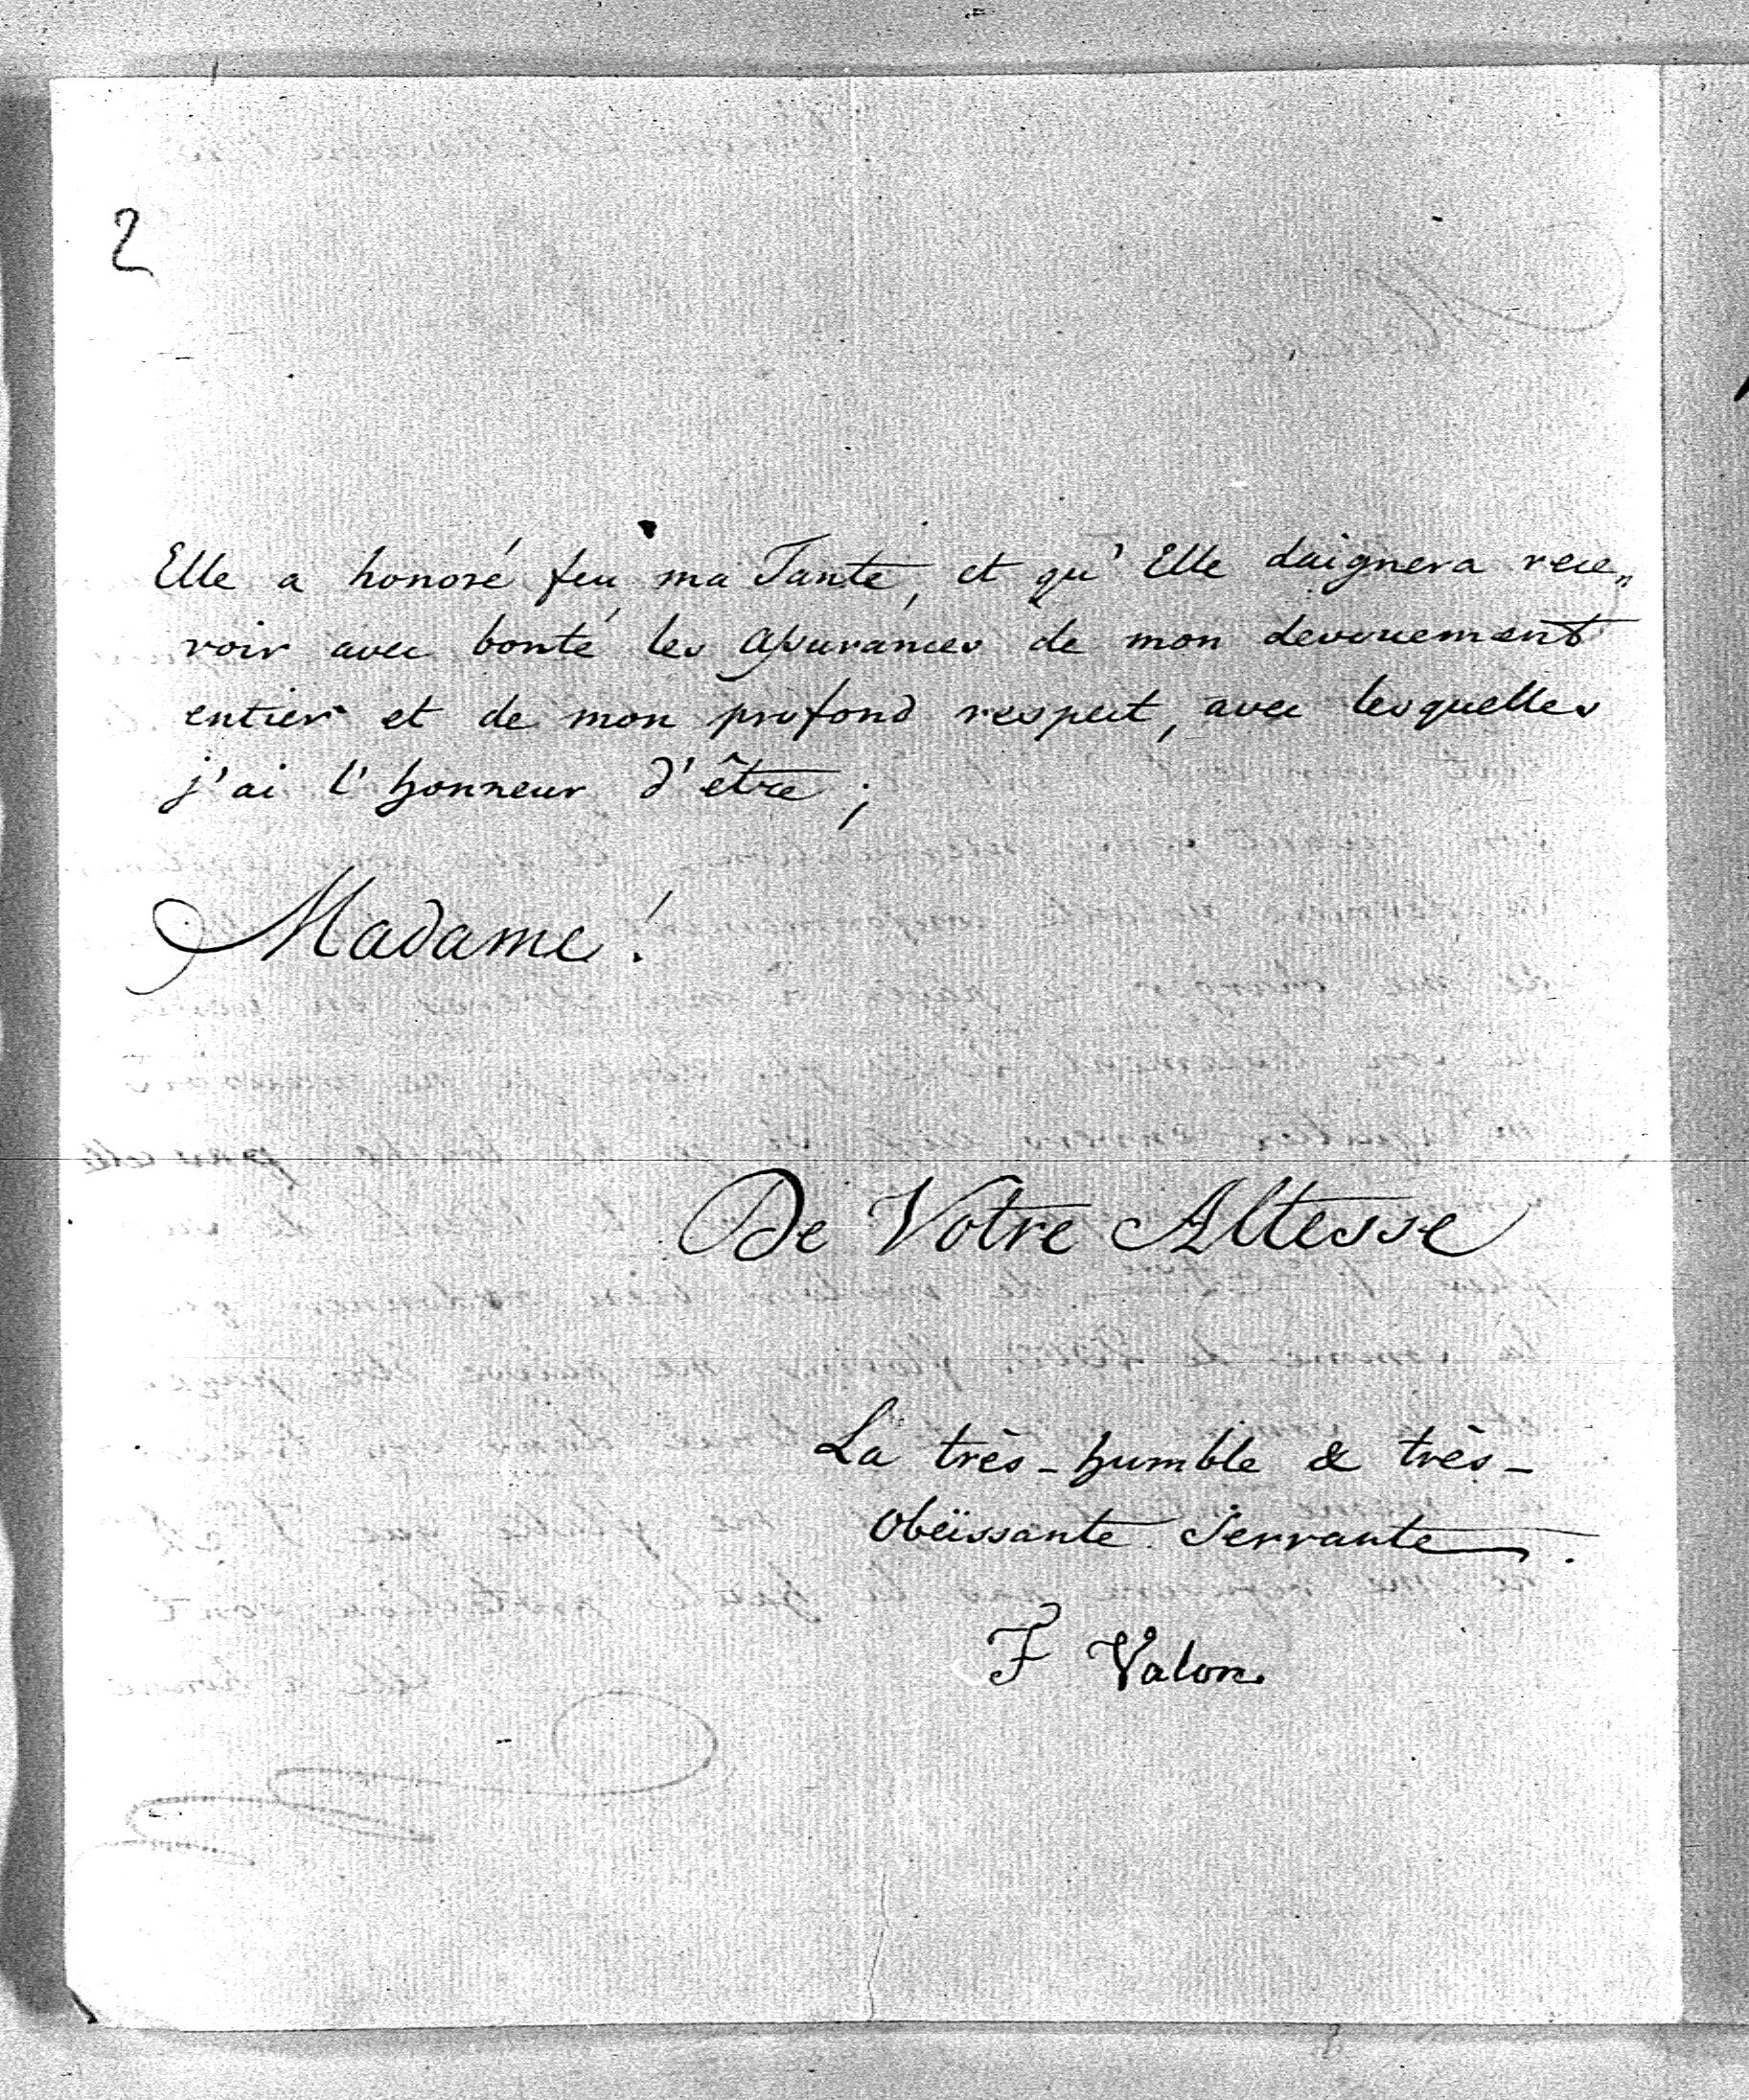 2
Elle a honoré feu ma Tante, et qu'Elle daignera rece„
voir avec bonté les assurances de mon devouement
entier et de mon profond respect, avec lesquelles
j'ai l'honneur d'être;
Madame!
De Votre Altesse
La très-humble & très-
obeïssante Servante.
F Valon